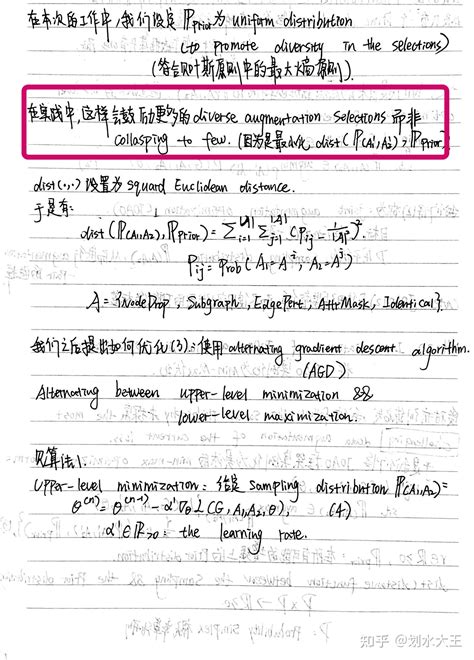 在本次的工作中,我们设定 ℙprior 为 uniform distribution
(to promote diversity in the selections)
(符合贝叶斯原则中的最大熵原则).
在实践中,这样会鼓励更多的 diverse augmentation selections 而非
collasping to few. (因为是最小化 dist(ℙ(A1,A2), ℙprior)
dist(·,·) 设置为 squard Euclidean distance.
于是有:
dist(ℙ(A1,A2), ℙprior) = Σ_{i=1}^{|A|} Σ_{j=1}^{|A|} (Pij - 1/|A|²)².
Pij = Prob(A1=A^i, A2=A^j)
A = {NodeDrop, Subgraph, EdgePert, AttrMask, Identical}.
我们之后提出如何优化(3):使用 alternating gradient descent algorithm.
(AGD)
Alternating between upper-level minimization &&
lower-level maximization.
见算法1.
Upper-level minimization: 给定 sampling distribution ℙ(A1,A2)=
θ^(n) = θ^(n-1) - α'∇θ L(G, A1, A2, θ), (4)
α' ∈ ℝ>0: the learning rate.
知乎 @划水大王